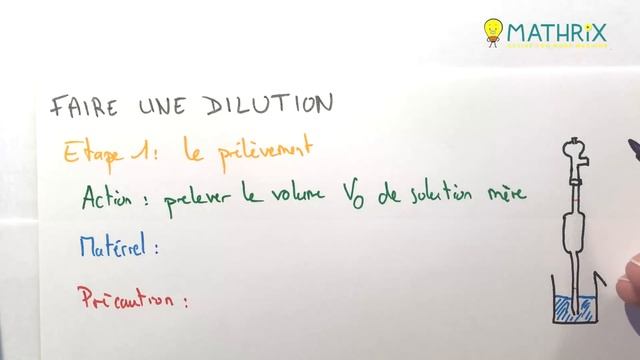 MATHRiX
FAIRE UNE DILUTION
Etape 1 : le prélèvement
Action : prelever le volume V0 de solution mère
Matériel :
Précaution :